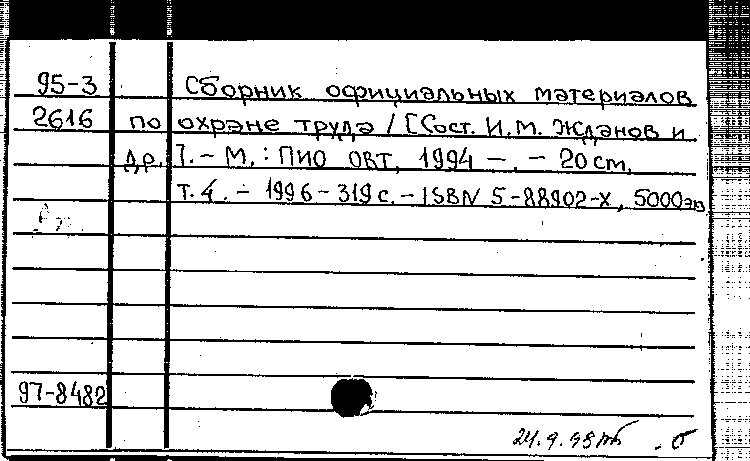 95-3 Сборник официальных материалов
2616 по охране труда / [Сост. И.М. Жданов и
др.]. – М. : ПИО ОВТ, 1994 – . – 20 см.
Т. 4. – 1996 – 319 с. – ISBN 5-88902-X, 5000 эк
97-8482
24.9.98